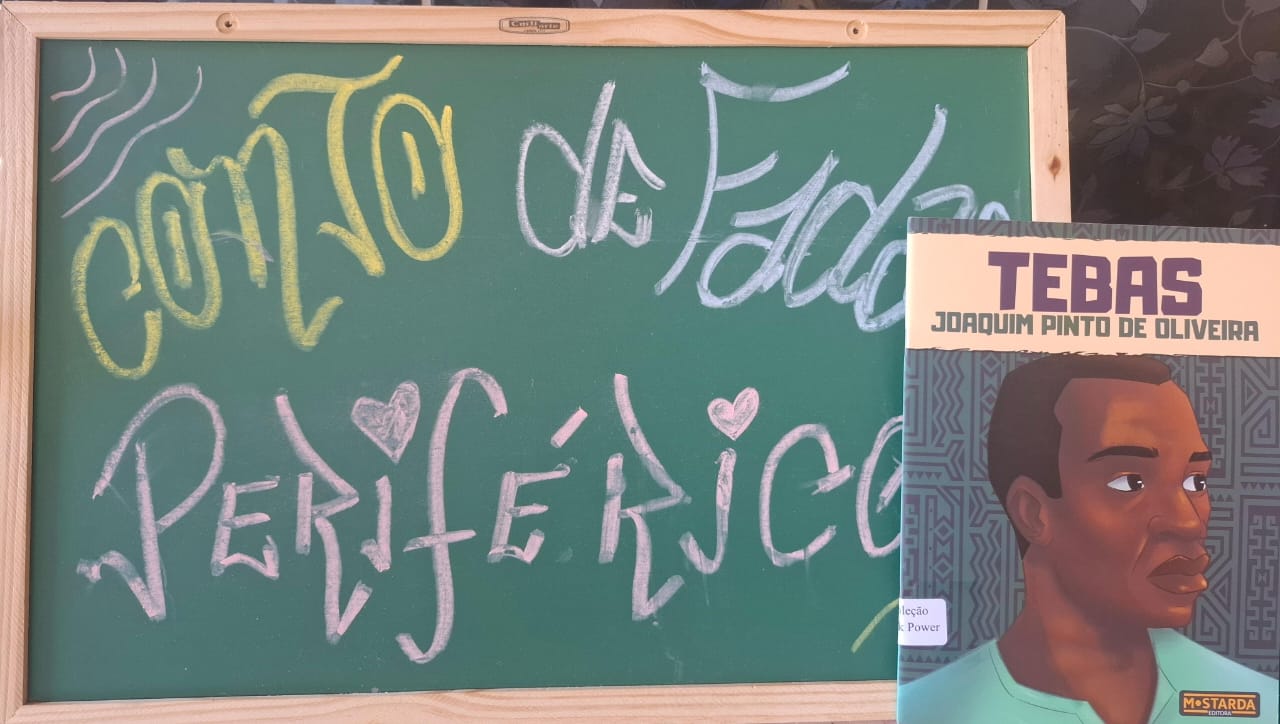 CONTO de FADAS
PERIFÉRICO
TEBAS
JOAQUIM PINTO DE OLIVEIRA
leção
k Power
MOSTARDA
EDITORA